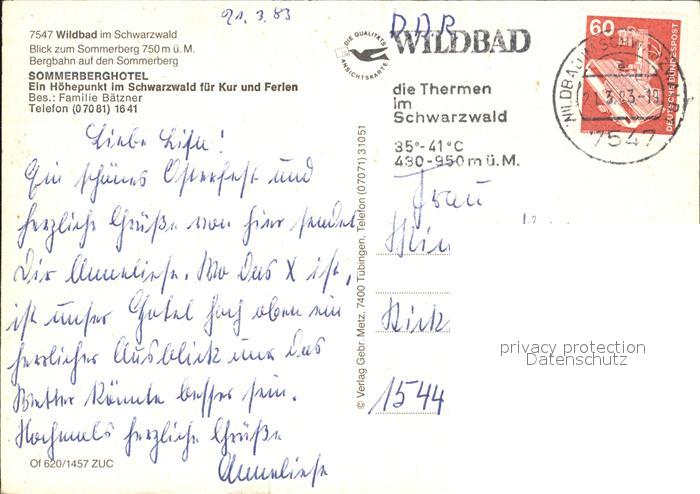 21.3.83
7547 Wildbad im Schwarzwald
Blick zum Sommerberg 750 m ü. M.
Bergbahn auf den Sommerberg
SOMMERBERGHOTEL
Ein Höhepunkt im Schwarzwald für Kur und Ferien
Bes.: Familie Bätzner
Telefon (07081) 1641
Ein schönes Osterfest und
herzliche Grüße von hier sendet
Dir Anneliese. Wo das X ist,
ist unser Hotel hoch oben ein
herrlicher Ausblick nur das
Wetter könnte besser sein.
Nochmals herzliche Grüße
Anneliese
Of 620/1457 ZUC
© Verlag Gebr. Metz, 7400 Tübingen, Telefon (07071) 31051
DDR
DIE QUALITÄTS
ANSICHTSKARTE
WILDBAD
die Thermen
im
Schwarzwald
35°-41°C
430-950m ü.M.
60
DEUTSCHE BUNDESPOST
21.3.83-19
7547
Frau
1544
privacy protection
Datenschutz